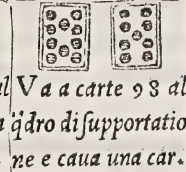 l V a a carte 98 al
a q̃dro di ſupportatio
ne e caua una car.